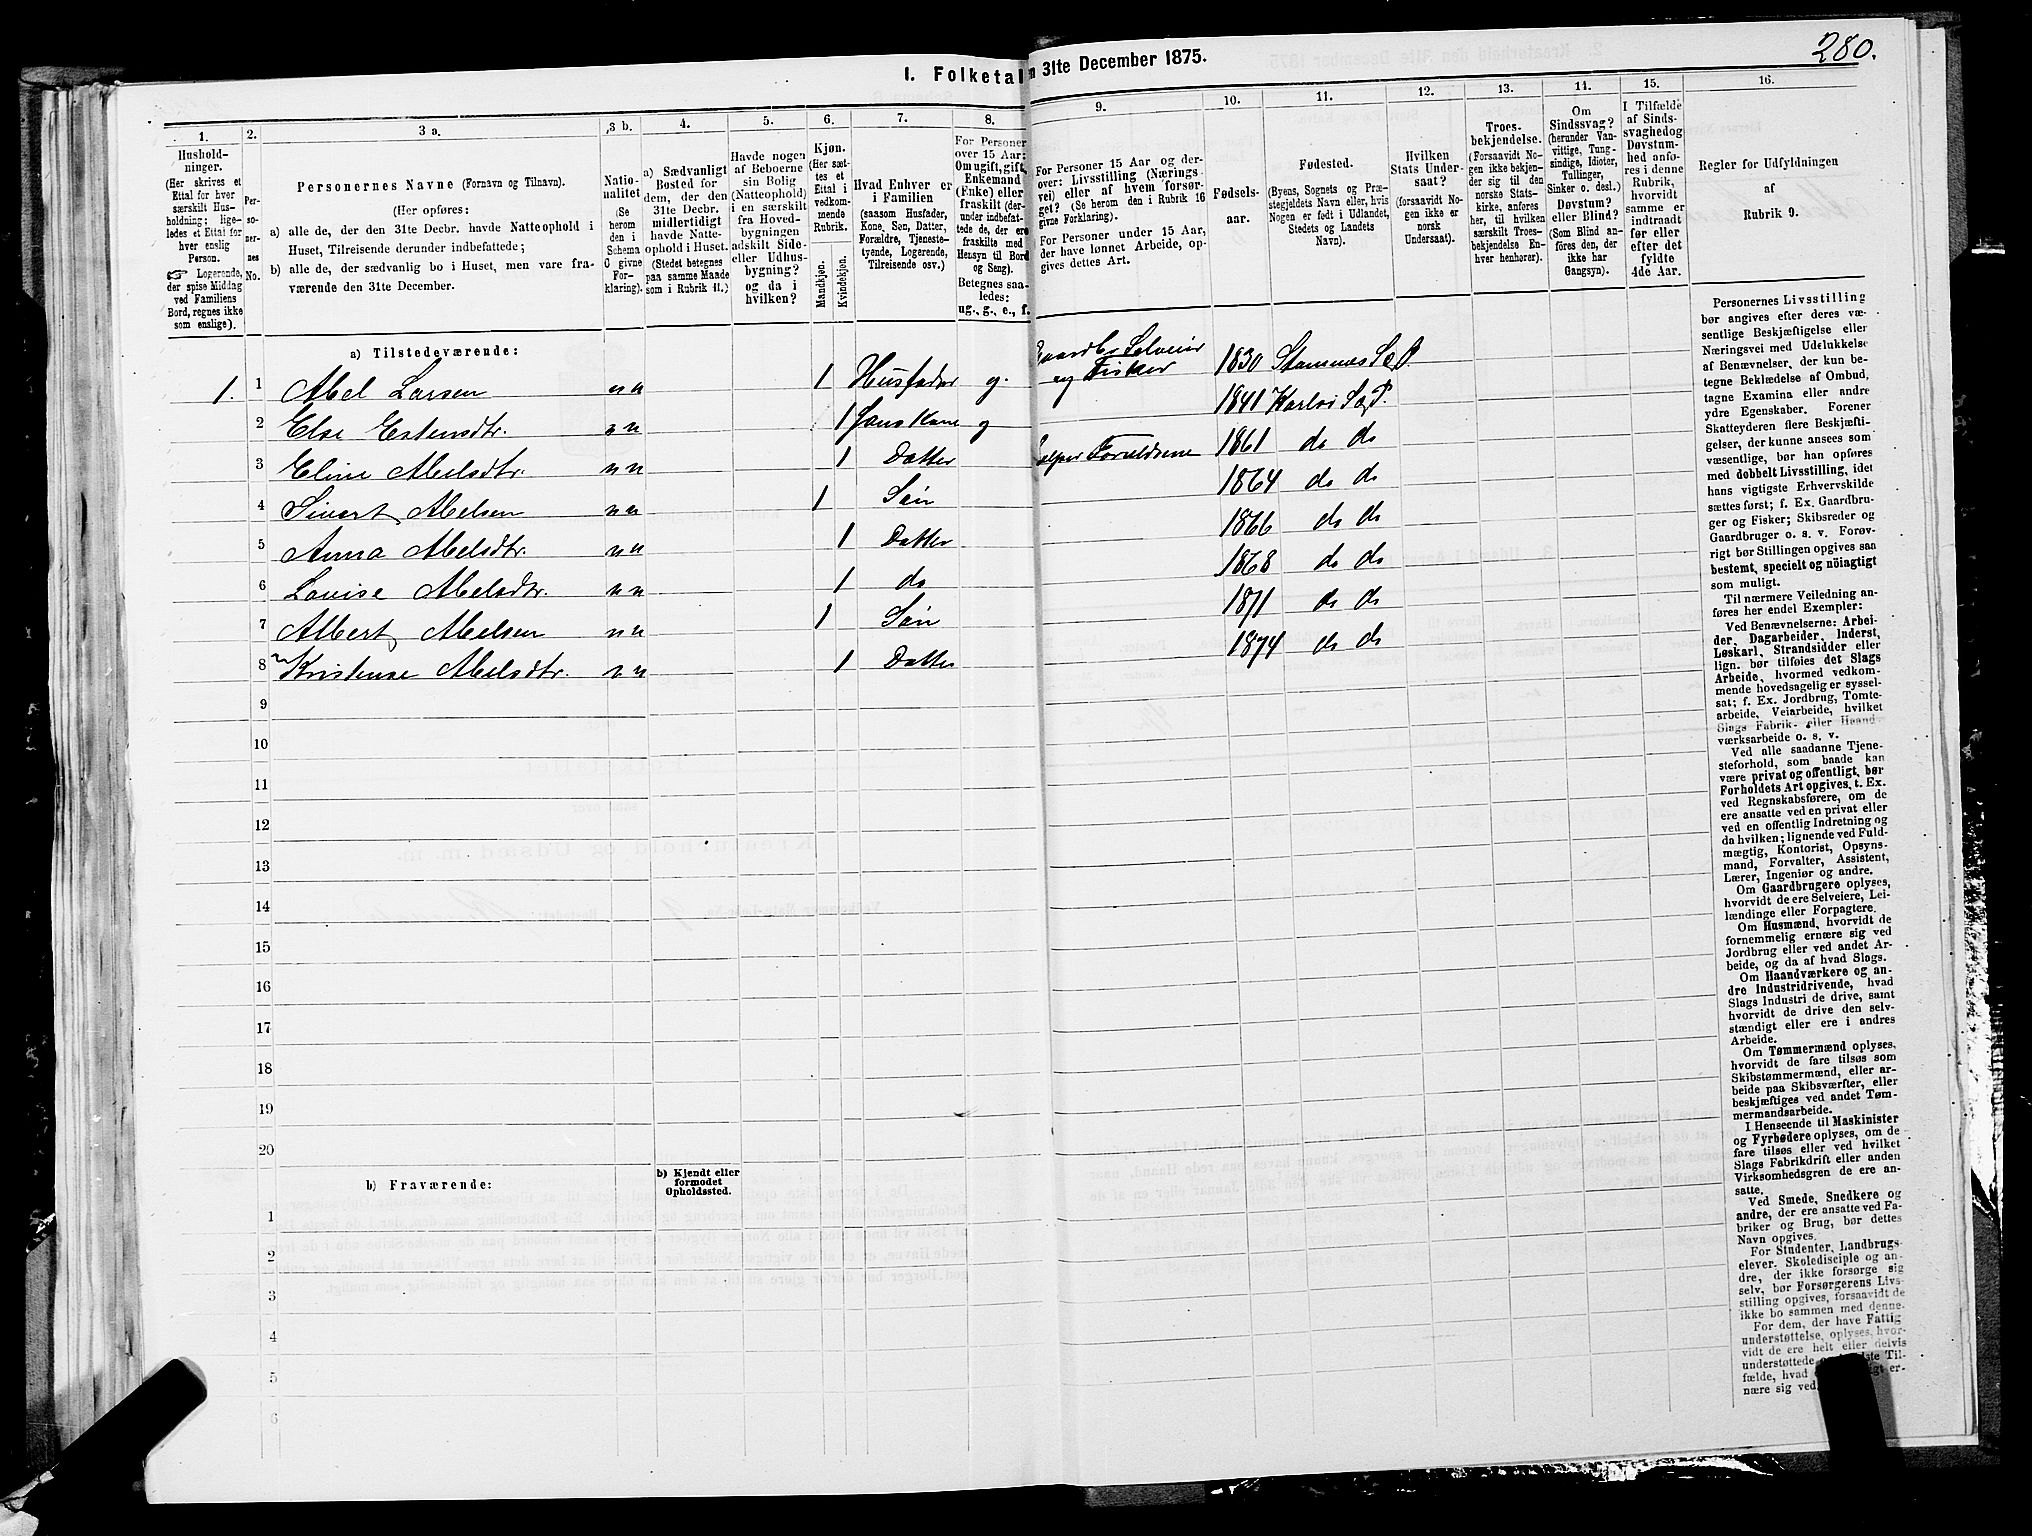 280.
I. Folketal
n 31te December 1875.
1.
2.
3 a.
3 b.
4.
5.
6.
7.
8.
9.
10.
11.
12.
13.
14.
15.
16.
Hushold-
ninger.
(Her skrives et
Ettal for hver
særskilt Hus-
holdning; lige-
ledes et Ettal for
hver enslig
Person.
☞ Logerende,
der spise Middag
ved Familiens
Bord, regnes ikke
som enslige).
Per-
so-
ner-
nes
No.
Personernes Navne (Fornavn og Tilnavn).
(Her opføres:
a) alle de, der den 31te Decbr. havde Natteophold i
Huset, Tilreisende derunder indbefattede;
b) alle de, der sædvanlig bo i Huset, men vare fra-
værende den 31te December.
Natio-
nalitet
(Se
herom
den i
Schema
C givne
For-
klaring).
a) Sædvanligt
Bosted for
dem, der den
31te Decbr.
midlertidigt
havde Natte-
ophold i Huset.
(Stedet betegnes
paa samme Maade
som i Rubrik 11.)
Havde nogen
af Beboerne
sin Bolig
(Natteophold)
i en særskilt
fra Hoved-
bygningen
adskilt Side-
eller Udhus-
bygning?
og da i
hvilken?
Kjøn.
(Her sæt-
tes et
Ettal i
vedkom-
mende
Rubrik.
Mandkjøn.
Kvindekjøn.
Hvad Enhver er
i Familien
(saasom Husfader,
Kone, Søn, Datter,
Forældre, Tjeneste-
tyende, Logerende,
Tilreisende osv.)
For Personer
over 15 Aar:
Om ugift, gift,
Enkemand
(Enke) eller
fraskilt (der-
under indbefat-
tede de, der ere
fraskilte med
Hensyn til Bord
og Seng).
Betegnes saa-
ledes:
ug., g., e., f.
For Personer 15 Aar og der-
over: Livsstilling (Nærings-
vei) eller af hvem forsør-
get? (Se herom den i Rubrik 16
givne Forklaring).
For Personer under 15 Aar,
der have lønnet Arbeide, op-
gives dettes Art.
Fødsels-
aar.
Fødested.
(Byens, Sognets og Præ-
stegjeldets Navn eller, hvis
Nogen er født i Udlandet,
Stedets og Landets
Navn).
Hvilken
Stats Under-
saat?
(forsaavidt No-
gen ikke er
norsk
Undersaat).
Troes-
bekjendelse.
(Forsaavidt No-
gen ikke bekjen-
der sig til den
norske Stats-
kirke, anføres
her, til hvilken
særskilt Troes-
bekjendelse En-
hver henhører).
Om
Sindssvag?
(herunder Van-
vittige, Tung-
sindige, Idioter,
Tullinger,
Sinker o. desl.)
Døvstum?
eller Blind?
(Som Blind an-
føres den, der
ikke har
Gangsyn).
I Tilfælde
af Sinds-
svaghed og
Døvstum-
hed anfø-
res i denne
Rubrik,
hvorvidt
samme er
indtraadt
før eller
efter det
fyldte
4de Aar.
Regler for Udfyldningen
af
Rubrik 9.
a) Tilstedeværende:
1. 1 Abel Larsen nn 1 Husfader g. Gaardbr Selveier og Fisker 1830 Stamnes S. & P.
2 Else Estensdtr. nn 1 hans Kone g 1841 Karlsø S. & P.
3 Eline Abelsdtr. nn 1 Datter hjelper Forældrene 1861 do do
4 Sivert Abelsen nn 1 Søn 1864 do do
5 Anna Abelsdtr. nn 1 Datter 1866 do do
6 Lovise Abelsdtr. nn 1 do 1868 do do
7 Albert Abelsen nn 1 Søn 1871 do do
8 Kristense Abelsdtr. nn 1 Datter 1874 do do
9
10
11
12
13
14
15
16
17
18
19
20
b) Fraværende:
b) Kjendt eller
formodet
Opholdssted.
1
2
3
4
5
6
Personernes Livsstilling
bør angives efter deres væ-
sentlige Beskjæftigelse eller
Næringsvei med Udelukkelse
af Benævnelser, der kun be-
tegne Beklædelse af Ombud,
tagne Examina eller andre
ydre Egenskaber. Forener
Skatteyderen flere Beskjæfti-
gelser, der kunne ansees som
væsentlige, bør han opføres
med dobbelt Livsstilling, idet
hans vigtigste Erhvervskilde
sættes først; f. Ex. Gaardbru-
ger og Fisker; Skibsreder og
Gaardbruger o. s. v. Forøv-
rigt bør Stillingen opgives saa
bestemt, specielt og nöiagtigt
som muligt.
Til nærmere Veiledning an-
føres her endel Exempler:
Ved Benævnelserne: Arbei-
der, Dagarbeider, Inderst,
Løskarl, Strandsidder eller
lign. bør tilføies det Slags
Arbeide, hvormed vedkom-
mende hovedsagelig er syssel-
sat; f. Ex. Jordbrug, Tomte-
arbeide, Veiarbeide, hvilket
Slags Fabrik- eller Haand-
værksarbeide o. s. v.
Ved alle saadanne Tjene-
steforhold, som baade kan
være privat og offentligt, bør
Forholdets Art opgives, t. Ex.
ved Regnskabsførere, om de
ere ansatte ved en privat eller
ved en offentlig Indretning og
da hvilken; lignende ved Fuld-
mægtig, Kontorist, Opsyns-
mand, Forvalter, Assistent,
Lærer, Ingeniør og andre.
Om Gaardbrugere oplyses,
hvorvidt de ere Selveiere, Lei-
lændinge eller Forpagtere.
Om Husmænd, hvorvidt de
fornemmelig ernære sig ved
Jordbrug eller ved andet Ar-
beide, og da af hvad Slags.
Om Haandværkere og an-
dre Industridrivende, hvad
Slags Industri de drive, samt
hvorvidt de drive den selv-
stændigt eller ere i andres
Arbeide.
Om Tømmermænd oplyses,
hvorvidt de fare tilsøs som
Skibstømmermænd, eller ar-
beide paa Skibsværfter, eller
beskjæftiges ved andet Tøm-
mermandsarbeide.
I Henseende til Maskinister
og Fyrbødere oplyses, om de
fare tilsøs eller ved hvilket
Slags Fabrikdrift eller anden
Virksomhedsgren de ere an-
satte.
Ved Smede, Snedkere og
andre, der ere ansatte ved Fa-
briker og Brug, bør dettes
Navn opgives.
For Studenter, Landbrugs-
elever, Skoledisciple og an-
dre, der ikke forsørge sig
selv, bør Forsørgerens Livs-
stilling opgives, forsaavidt de
ikke bo sammen med denne.
For dem, der have Fattig-
understøttelse, oplyses, hvor-
vidt de ere helt eller delvis
understøttede
fælde, hvad
nære sig ved.